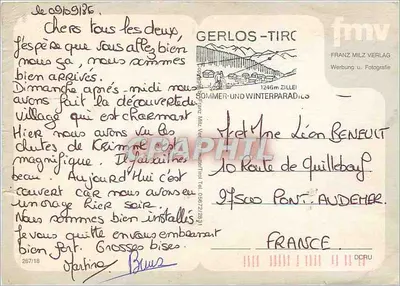 le 09/09/86.
Chers tous les deux,
J'espère que vous allez bien
nous ça, nous sommes
bien arrivés.
Dimanche après-midi nous
avons fait la découverte du
village qui est charmant
Hier nous avons vu les
chutes de Krimml est
magnifique. Il faisait très
beau. Aujourd'hui c'est
couvert car nous avons eu
un orage hier soir.
Nous sommes bien installés
Je vous quitte en vous embrassant
bien fort. Grosses bises.
Martine
267/18
GERLOS-TIRO
1246m ZILLE
SOMMER-UND WINTERPARADIES
fmv
FRANZ MILZ VERLAG
Werbung u. Fotografie
M et Mme Léon BENEULT
10 Route de Quillebeuf
27500 PONT-AUDEMER.
FRANCE.
DCRU
CPAPHIL